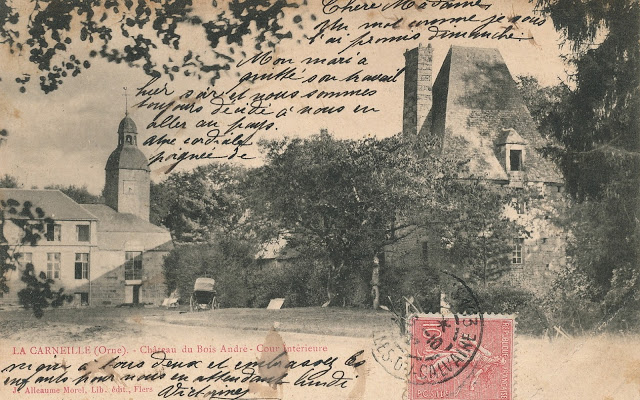 Chere Madame
Un mot comme je vous
l'ai promis dimanche
Mon mari a
quitté son travail
hier soir et nous sommes
toujours décidé à nous en
aller au pays.
une cordiale
poignée de
LA CARNEILLE (Orne). - Château du Bois André - Cour intérieure
main à tous deux et embrassez les
enfants pour nous en attendant
Victorine
J. Alleaume Morel, Lib. édit., Flers
10
CALVAIRE